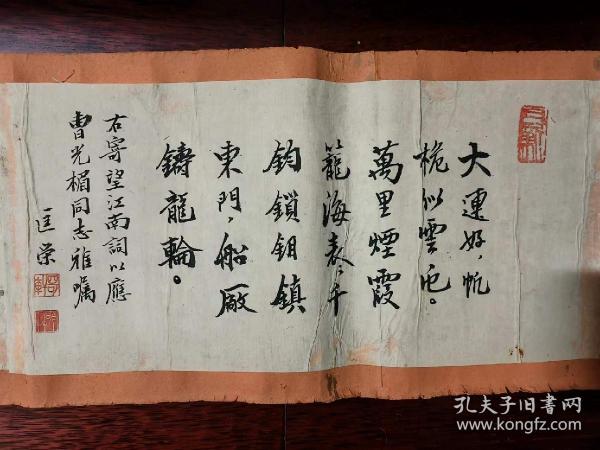 大連好，帆
桅似雲屯。
萬里煙霞
籠海表，千
鈞鎖鈅鎮
東門，船廠
鑄龍輪。
右寄望江南詞以應
曹光楣同志雅囑
匡榮
孔夫子旧書网
www.kongfz.com